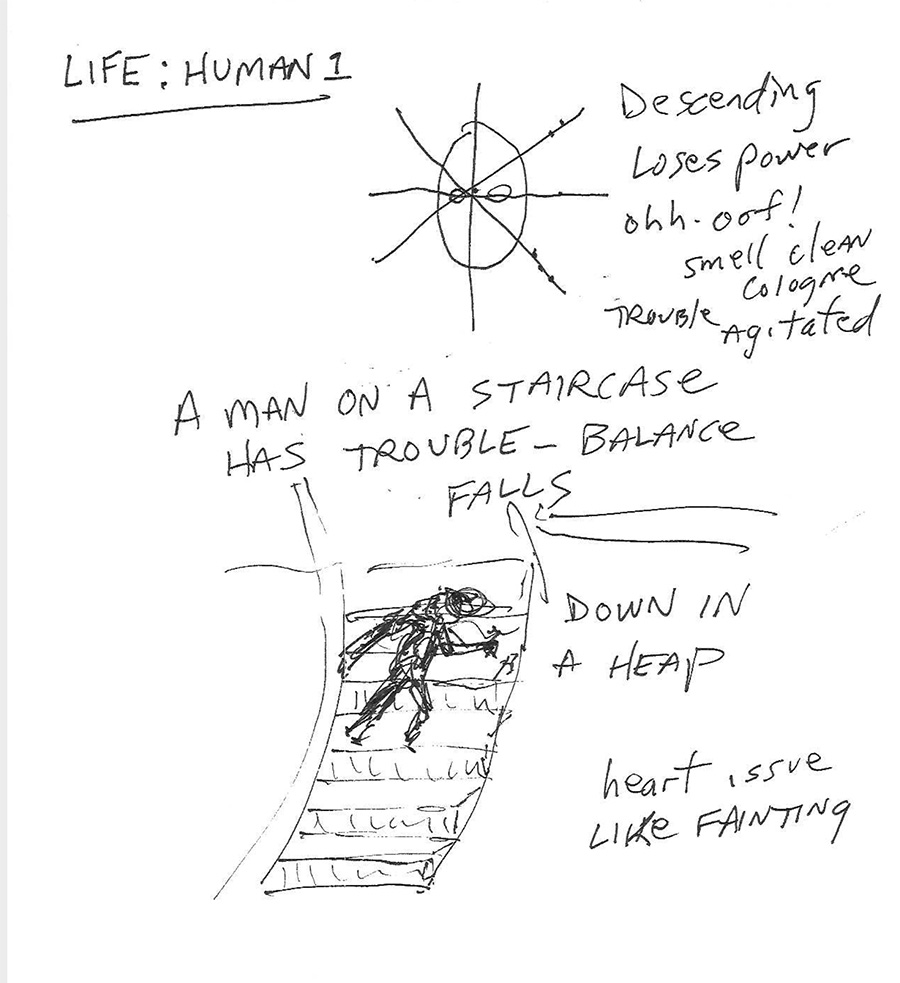 LIFE: HUMAN 1
Descending
Loses power
ohh-oof!
smell clean
cologne
TROUBLE Agitated
A MAN ON A STAIRCASE
HAS TROUBLE - BALANCE
FALLS
DOWN IN
A HEAP
heart issue
LIKE FAINTING